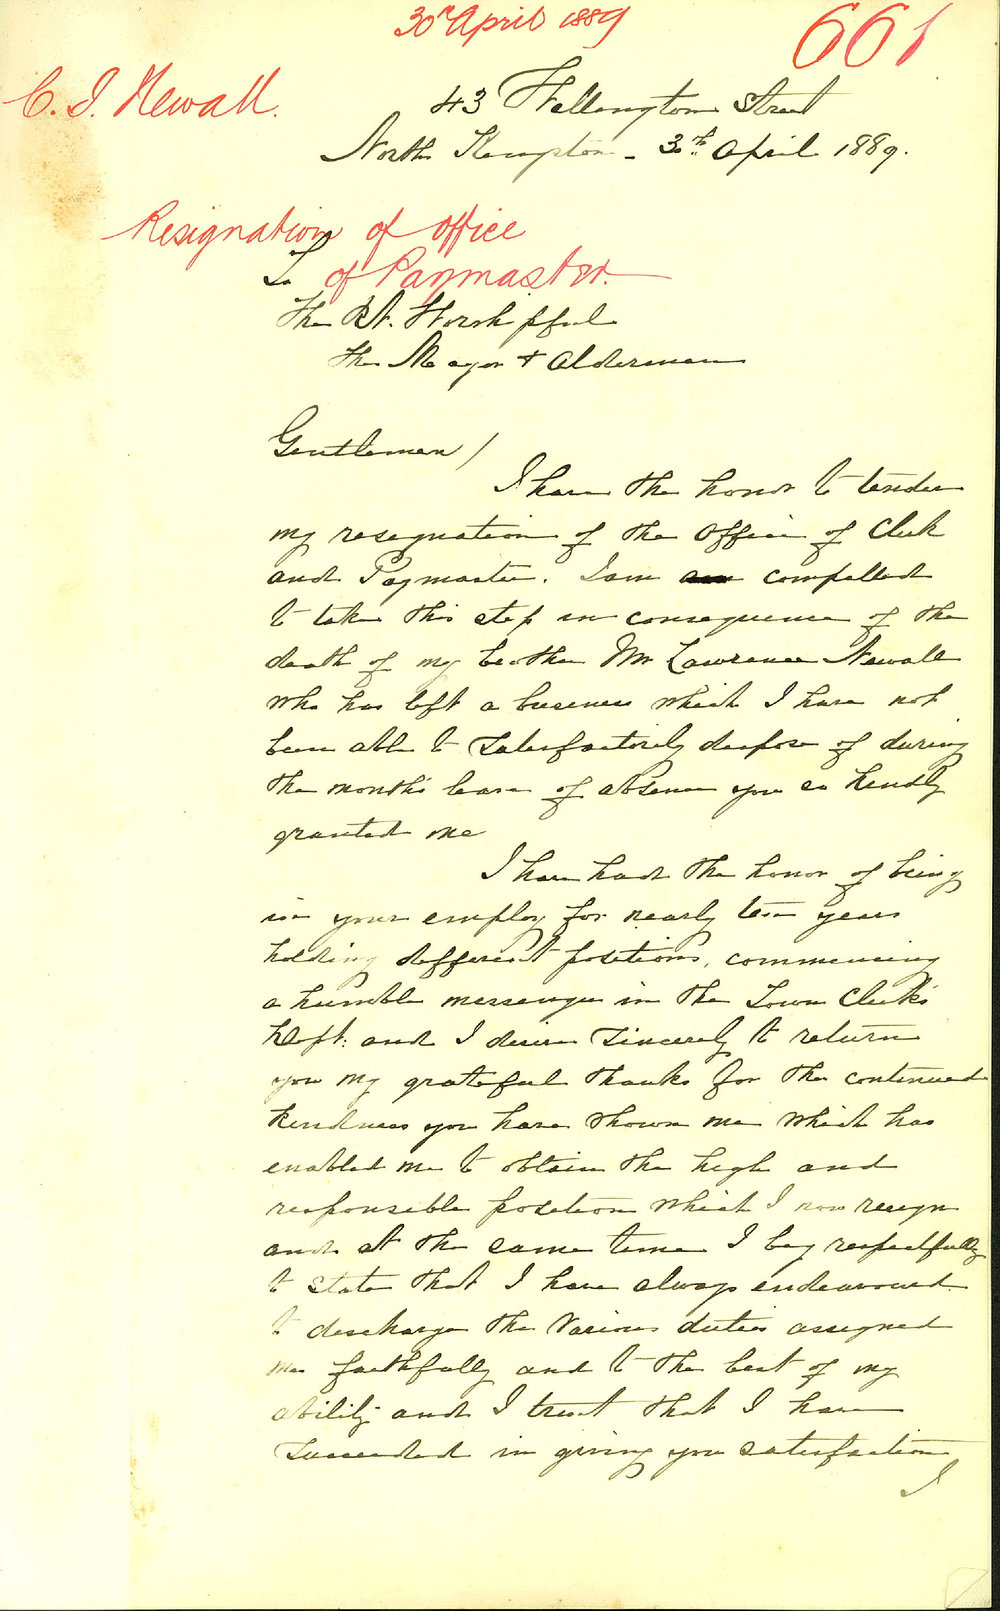 30th April 1889
661
C. I. Newall.
43 Wellington Street
North Kempton - 30th April 1889.
Resignation of office
of Paymaster.
To
The Rt. Worshipful
The Mayor & Aldermen
Gentlemen /
I have the honor to tender
my resignation of the Office of Clerk
and Paymaster. I am compelled
to take this step in consequence of the
death of my brother Mr Lawrence Newall
who has left a business which I have not
been able to satisfactorily dispose of during
the month's leave of absence you so kindly
granted me
I have had the honor of being
in your employ for nearly ten years
holding different positions, commencing
a humble messenger in the Town Clerk's
Dept: and I desire sincerely to return
you my grateful thanks for the continued
kindness you have shown me which has
enabled me to obtain the high and
responsible position which I now resign
and at the same time I beg respectfully
to state that I have always endeavoured
to discharge the various duties assigned
me faithfully and to the best of my
ability and I trust that I have
succeeded in giving you satisfaction
I